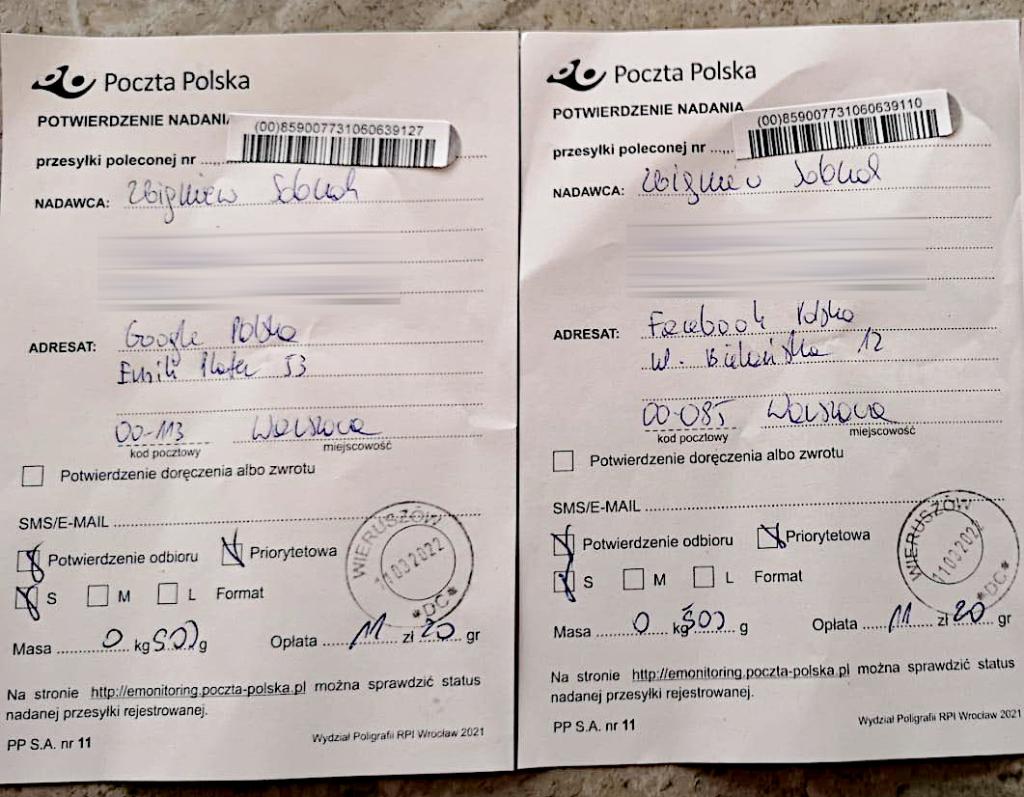 Poczta Polska
POTWIERDZENIE NADANI
(00)859007731060639127
przesyłki poleconej nr
NADAWCA: Zbigniew
ADRESAT: Google Polska
Emilii Plater 53
00-113 Warszawa
kod pocztowy miejscowość
Potwierdzenie doręczenia albo zwrotu
SMS/E-MAIL
Potwierdzenie odbioru Priorytetowa
S M L Format
WIERUSZÓW
11032022
*DC*
Masa 0 kg 500 g Opłata 11 zł 20 gr
Na stronie http://emonitoring.poczta-polska.pl można sprawdzić status
nadanej przesyłki rejestrowanej.
PP S.A. nr 11 Wydział Poligrafii RPI Wrocław 2021
Poczta Polska
POTWIERDZENIE NADANIA
(00)859007731060639110
przesyłki poleconej nr
NADAWCA: Zbigniew
ADRESAT: Facebook Polska
12
00-085 Warszawa
kod pocztowy miejscowość
Potwierdzenie doręczenia albo zwrotu
SMS/E-MAIL
Potwierdzenie odbioru Priorytetowa
S M L Format
WIERUSZÓW
11032022
*DC*
Masa 0 kg 500 g Opłata 11 zł 20 gr
Na stronie http://emonitoring.poczta-polska.pl można sprawdzić status
nadanej przesyłki rejestrowanej.
PP S.A. nr 11 Wydział Poligrafii RPI Wrocław 2021